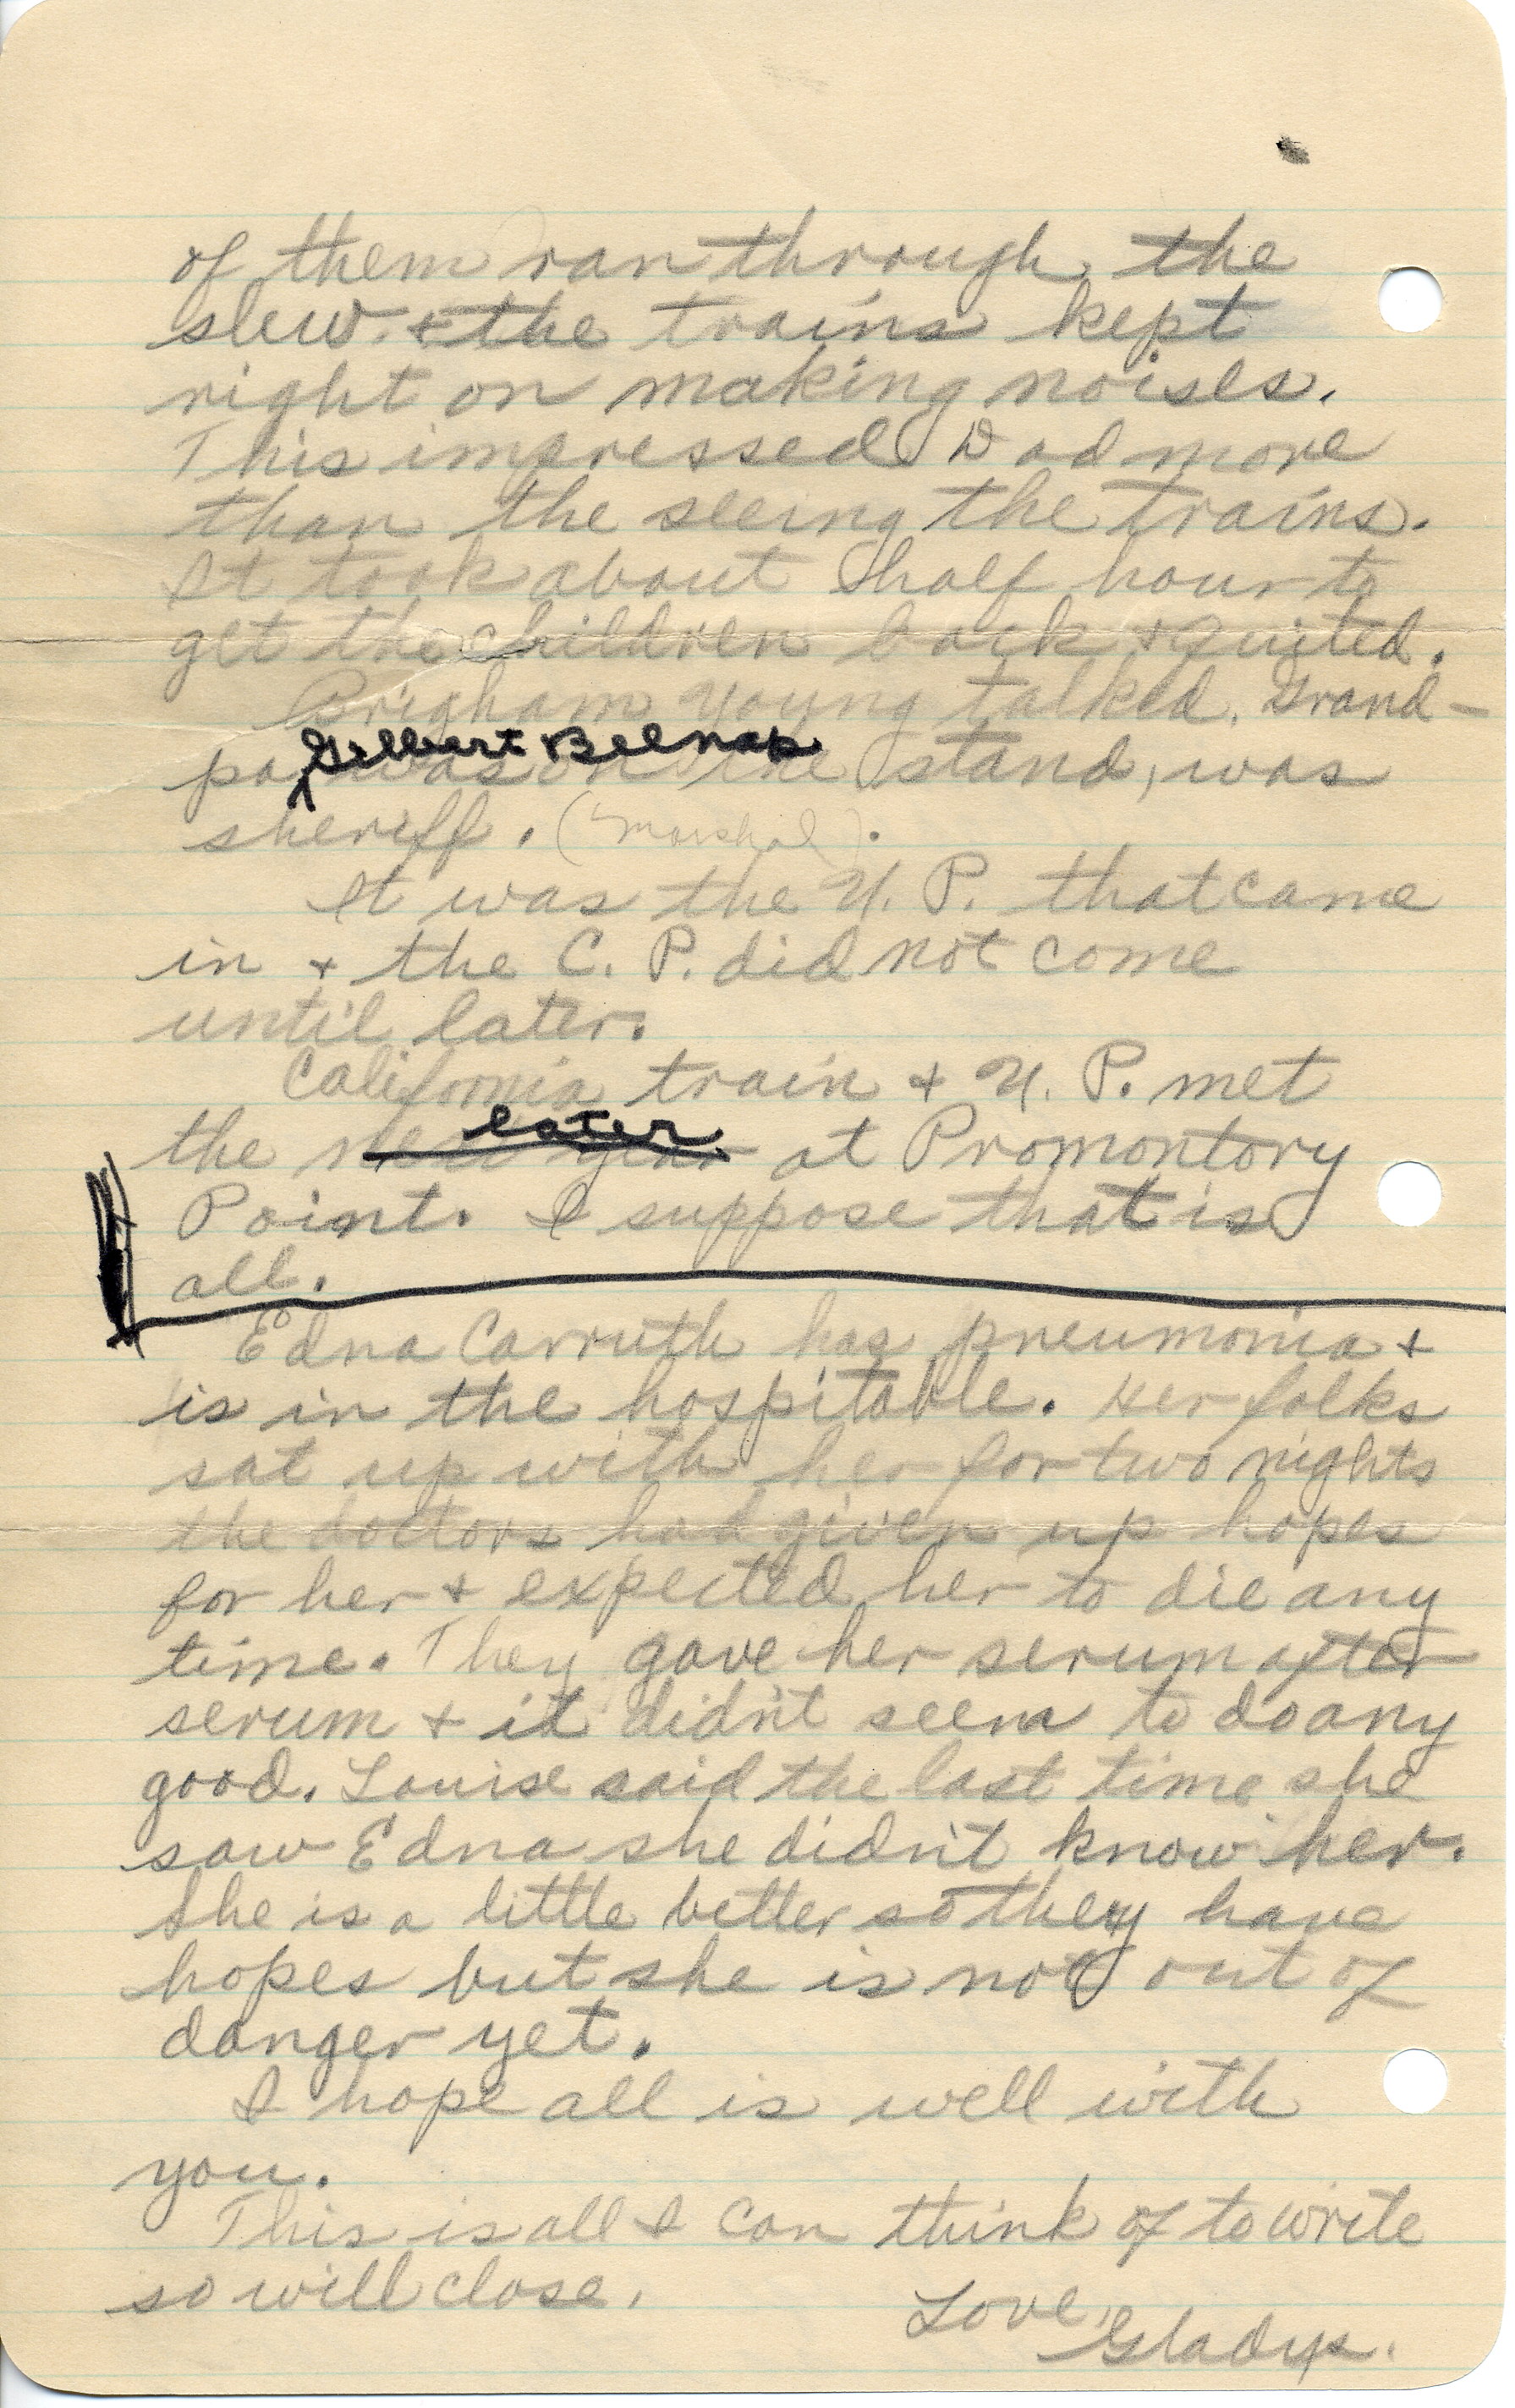 of them ran through the
slew. + the trains kept
right on making noises.
This impressed Dad more
than the seeing the trains.
It took about half hour to
get the children back + quited.
Brigham Young talked. Grand-
Gilbert Belnap
pa was on the stand, was
sheriff. (marshal).
It was the U. P. that came
in + the C. P. did not come
until later.
California train + U. P. met
later.
the next year at Promontory
Point. I suppose that is
all.
Edna Carruth has pneumonia +
is in the hospitable. Her folks
sat up with her for two nights
the doctors had given up hopes
for her + expected her to die any
time. They gave her serum after
serum + it didn't seem to do any
good. Louise said the last time she
saw Edna she didn't know her.
She is a little better so they have
hopes but she is not out of
danger yet.
I hope all is well with
you.
This is all I can think of to write
so will close.
Love,
Gladys.